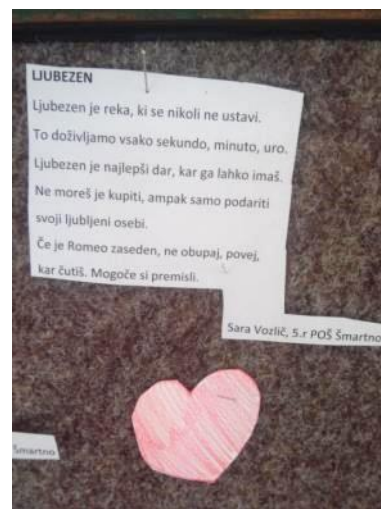 LJUBEZEN
Ljubezen je reka, ki se nikoli ne ustavi.
To doživljamo vsako sekundo, minuto, uro.
Ljubezen je najlepši dar, kar ga lahko imaš.
Ne moreš je kupiti, ampak samo podariti
svoji ljubljeni osebi.
Če je Romeo zaseden, ne obupaj, povej,
kar čutiš. Mogoče si premisli.
Sara Vozlič, 5.r POŠ Šmartno
Šmartno